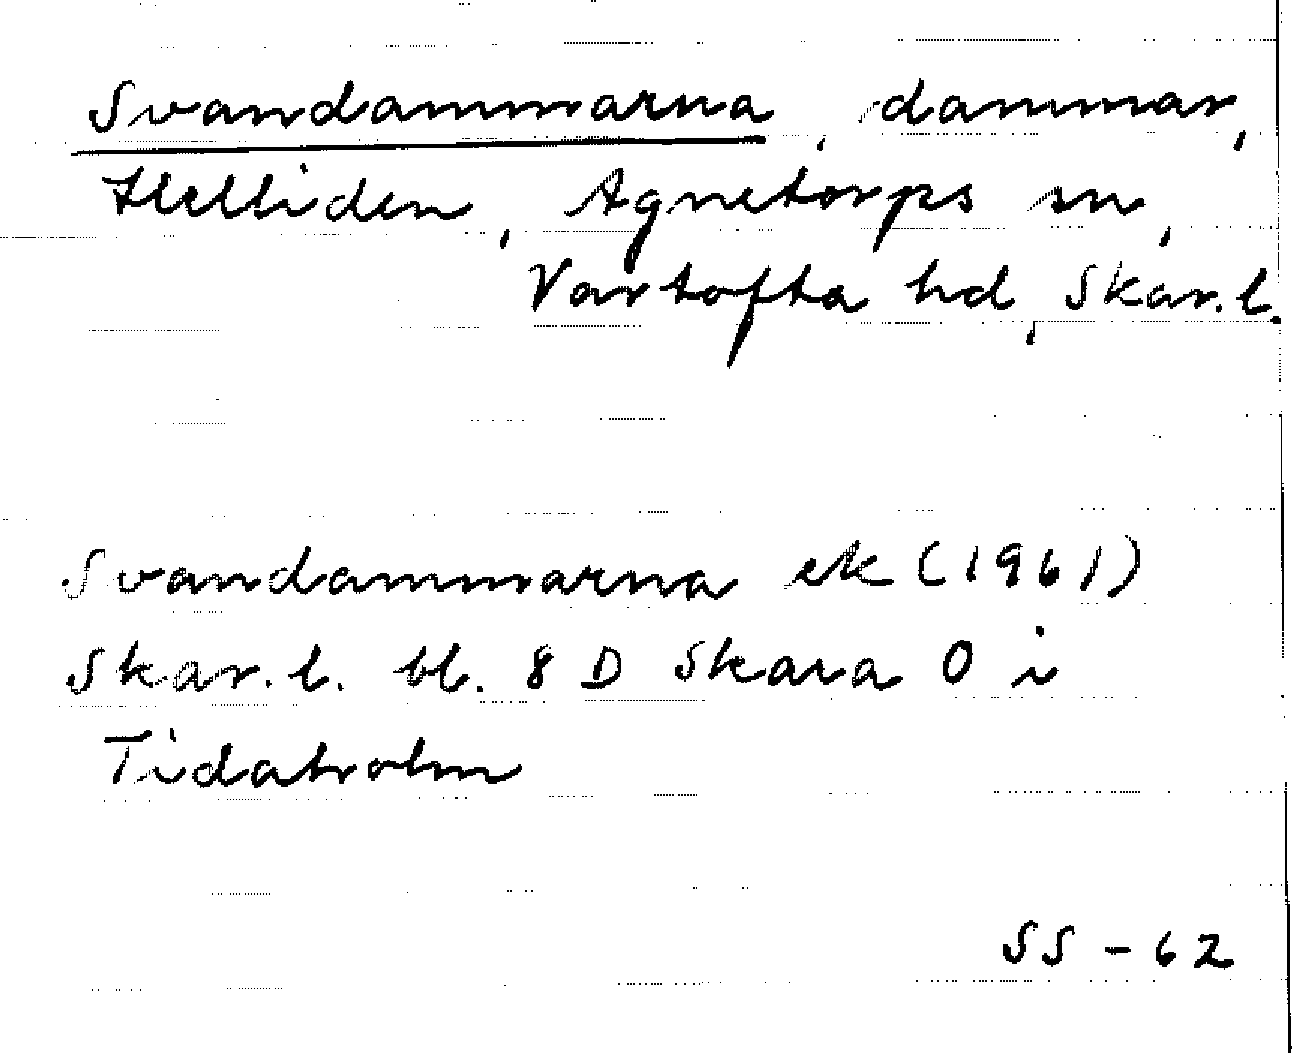 Svandammarna, dammar,
Helliden, Agnetorps sn,
Vartofta hd, Skar.l.
Svandammarna ek (1961)
Skar.l. bl. 8 D Skara O i
Tidaholm
SS - 62